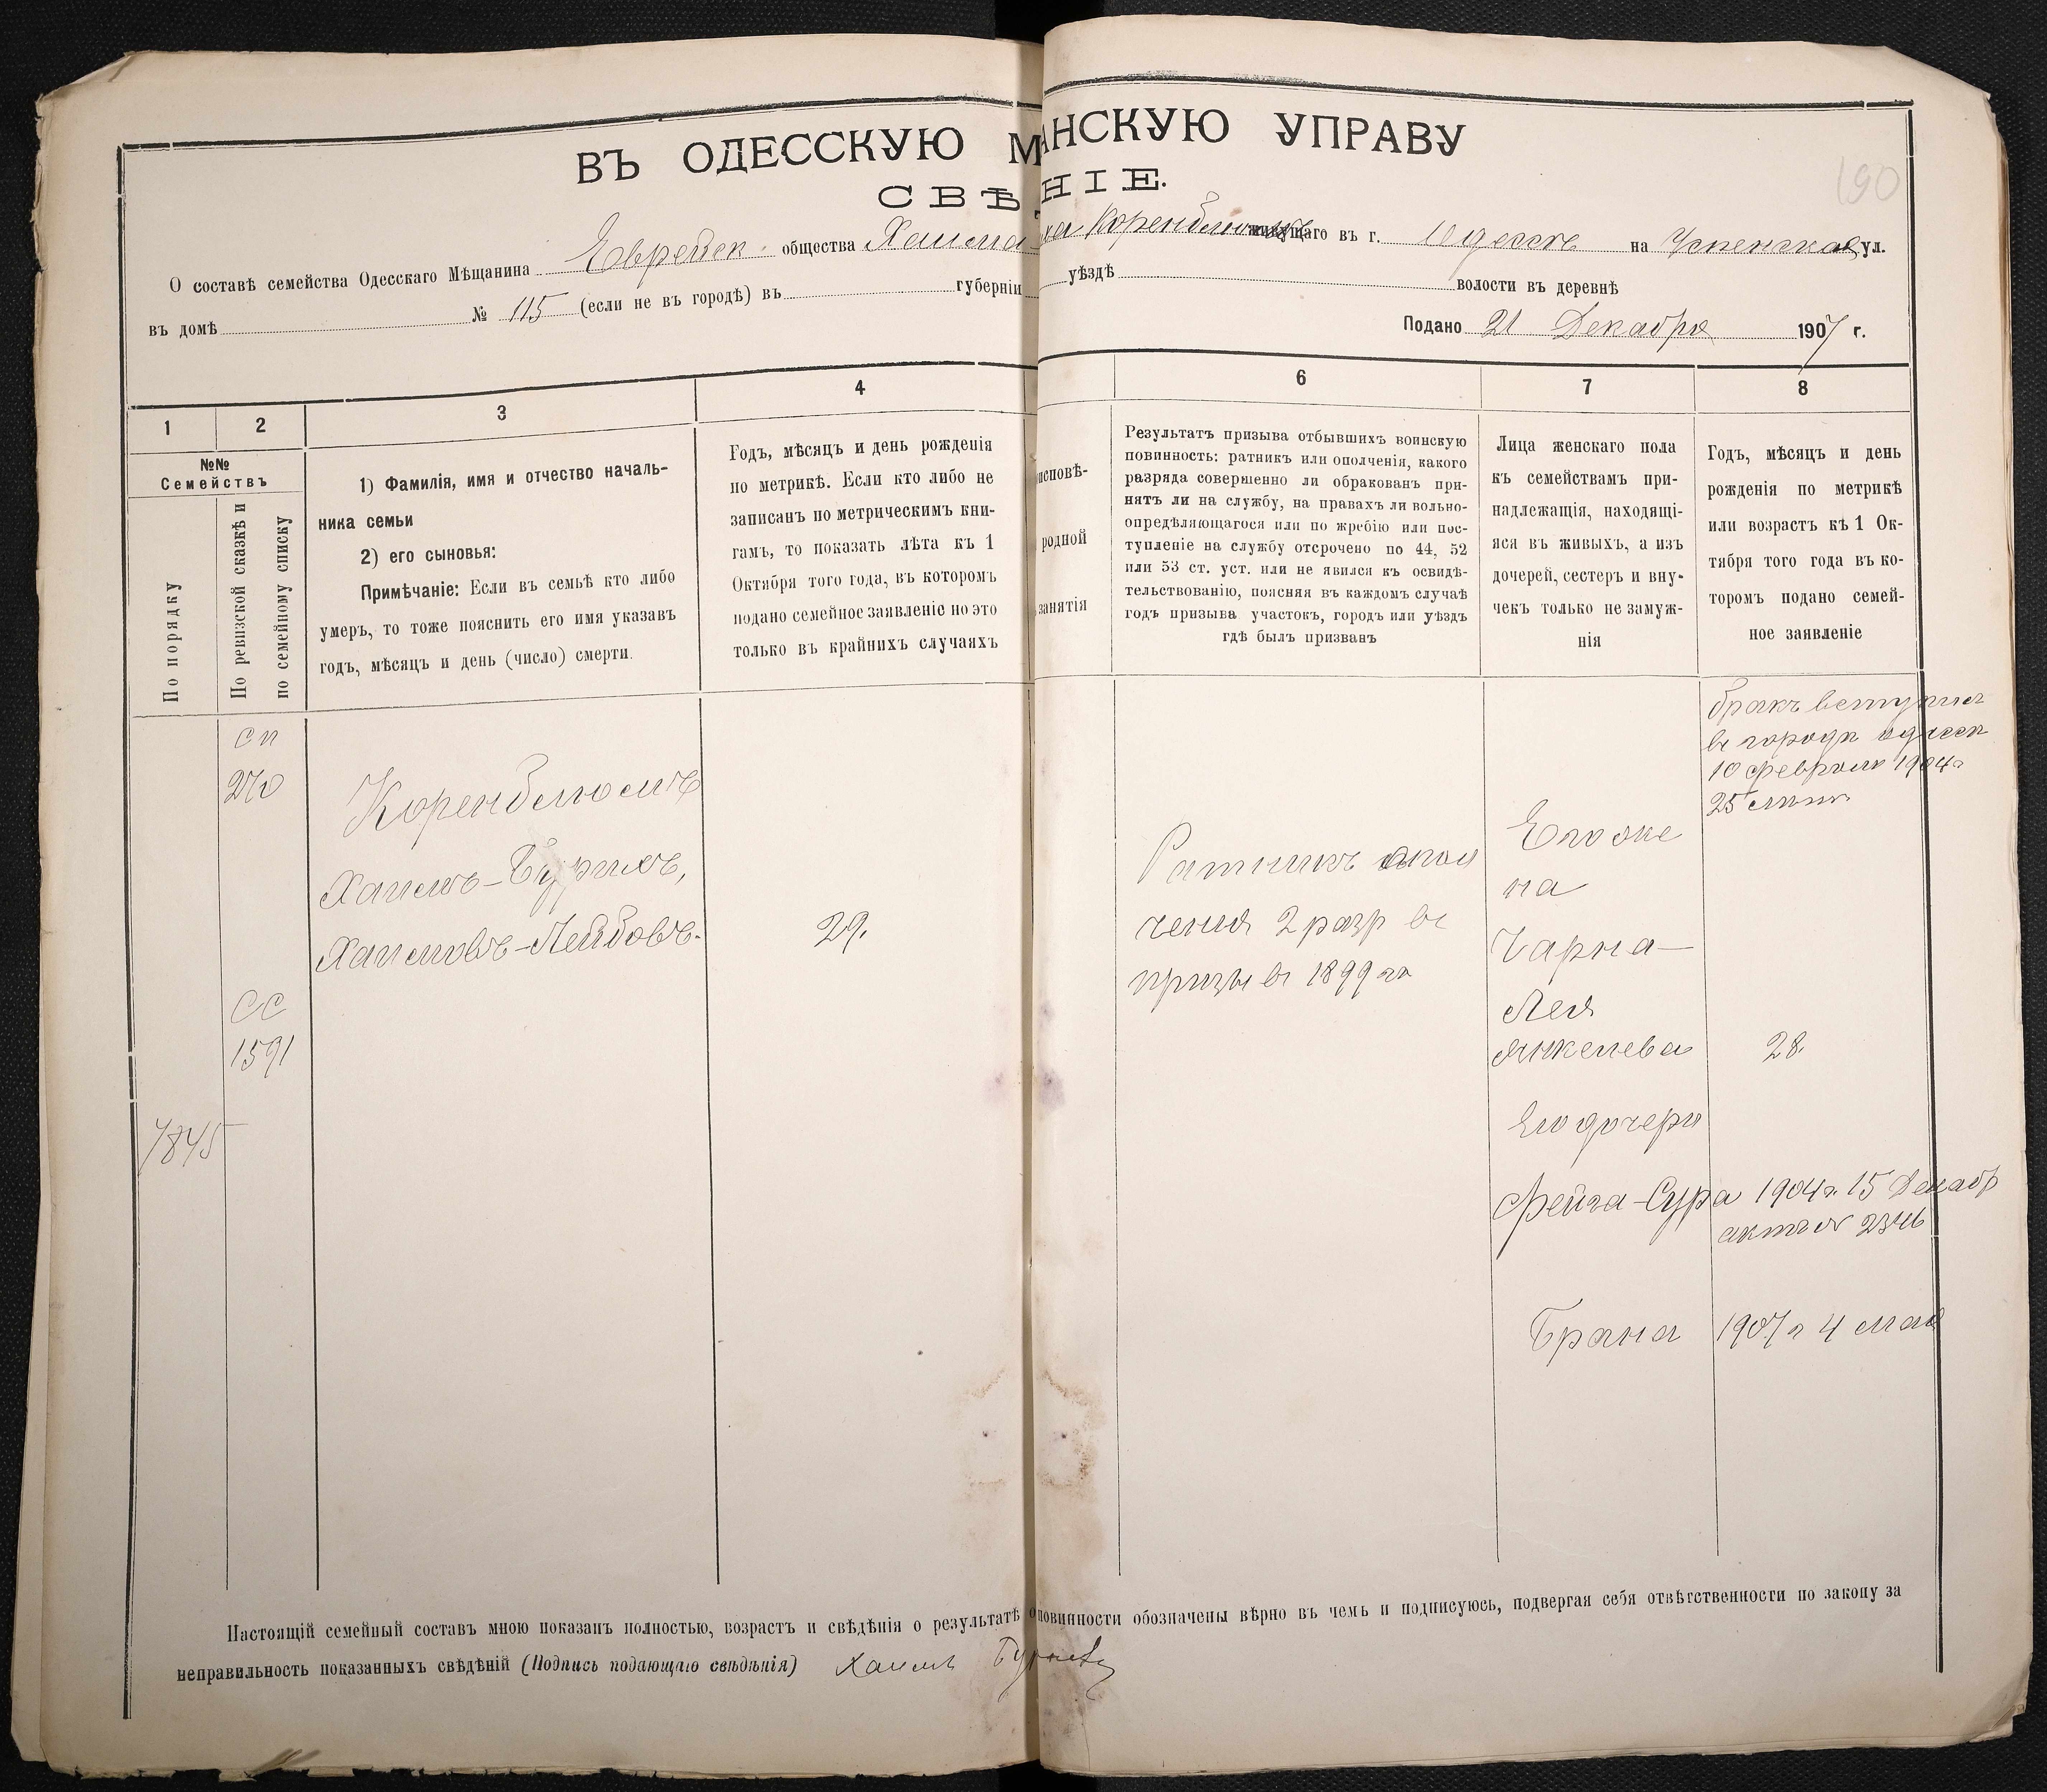 190
ВЪ ОДЕССКУЮ М АНСКУЮ УПРАВУ
СВѢ НІЕ.
О составѣ семейства Одесскаго Мѣщанина Еврейск. общества Хаима Коренблюмъ щаго въ г. Одессѣ на Успенская ул.
въ домѣ № 115 (если не въ городѣ) въ губерніи уѣздѣ волости въ деревнѣ
Подано 21 Декабря 1907 г.
1 2 3 4 6 7 8
№№
Семействъ
По порядку
По ревизской сказкѣ и
по семейному списку
1) Фамилія, имя и отчество началь-
ника семьи
2) его сыновья:
Примѣчаніе: Если въ семьѣ кто либо
умеръ, то тоже пояснить его имя указавъ
годъ, мѣсяцъ и день (число) смерти.
Годъ, мѣсяцъ и день рожденія
по метрикѣ. Если кто либо не
записанъ по метрическимъ кни-
гамъ, то показать лѣта къ 1
Октября того года, въ которомъ
подано семейное заявленіе но это
только въ крайнихъ случаяхъ
исповѣ-
родной
занятія
Результатъ призыва отбывшихъ воинскую
повинность: ратникъ или ополченія, какого
разряда совершенно ли обракованъ при-
нятъ ли на службу, на правахъ ли вольно-
опредѣляющагося или по жребію или пос-
тупленіе на службу отсрочено по 44, 52
или 53 ст. уст. или не явился къ освидѣ-
тельствованію, поясняя въ каждомъ случаѣ
годъ призыва участокъ, городъ или уѣздъ
гдѣ былъ призванъ
Лица женскаго пола
къ семействамъ при-
надлежащія, находящі-
яся въ живыхъ, а изъ
дочерей, сестеръ и вну-
чекъ только не замуж-
нія
Годъ, мѣсяцъ и день
рожденія по метрикѣ
или возрастъ къ 1 Ок-
тября того года въ ко-
торомъ подано семей-
ное заявленіе
7845
сп
270
сс
1591
Коренблюмъ
Хаимъ-Бурихъ,
Хаимовъ-Лейбовъ.
29.
Ратникъ опол
ченія 2 разр въ
призывъ 1899 г.
Его же
на
Чарна-
Лея
Янкелева
28.
бракъ вступилъ
въ городѣ Одессѣ
10 февраля 1904 г
25
Его дочери
Фейга-Сура 1904 г. 15 Декабр
актъ № 2346
Брана 1907 г 4 мая
Настоящій семейный составъ мною показанъ полностью, возрастъ и свѣдѣнія о результатѣ повинности обозначены вѣрно въ чемъ и подписуюсь, подвергая себя отвѣтственности по закону за
неправильность показанныхъ свѣдѣній (Подпись подающаго свѣдѣнія) Хаимъ